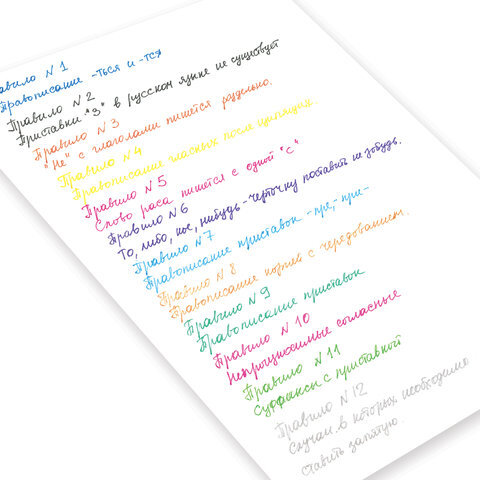 авило N 1
Правописание -ться и -тся
Правило N 2
Приставки "З" в русском языке не существует
Правило N 3
"Не" с глаголами пишется раздельно.
Правило N 4
Правописание гласных после шипящих.
Правило N 5
Слово раса пишется с одной "с"
Правило N 6
То, либо, кое, нибудь - черточку поставить не забудь.
Правило N 7
Правописание приставок -пре, -при-
Правило N 8
Правописание корней с чередованием.
Правило N 9
Правописание приставок
Правило N 10
Непроизносимые согласные
Правило N 11
Суффикси с приставкой
Правило N 12
Случаи, в которых необходимо
ставить запятую.